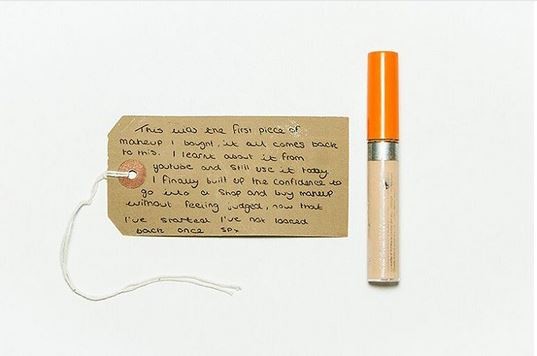 This was the first piece of
makeup I bought, it all comes back
to this. I learnt about it from
youtube and still use it today
I finally built up the confidence to
go into a shop and buy makeup
without feeling judged, now that
I've started I've not looked
back once